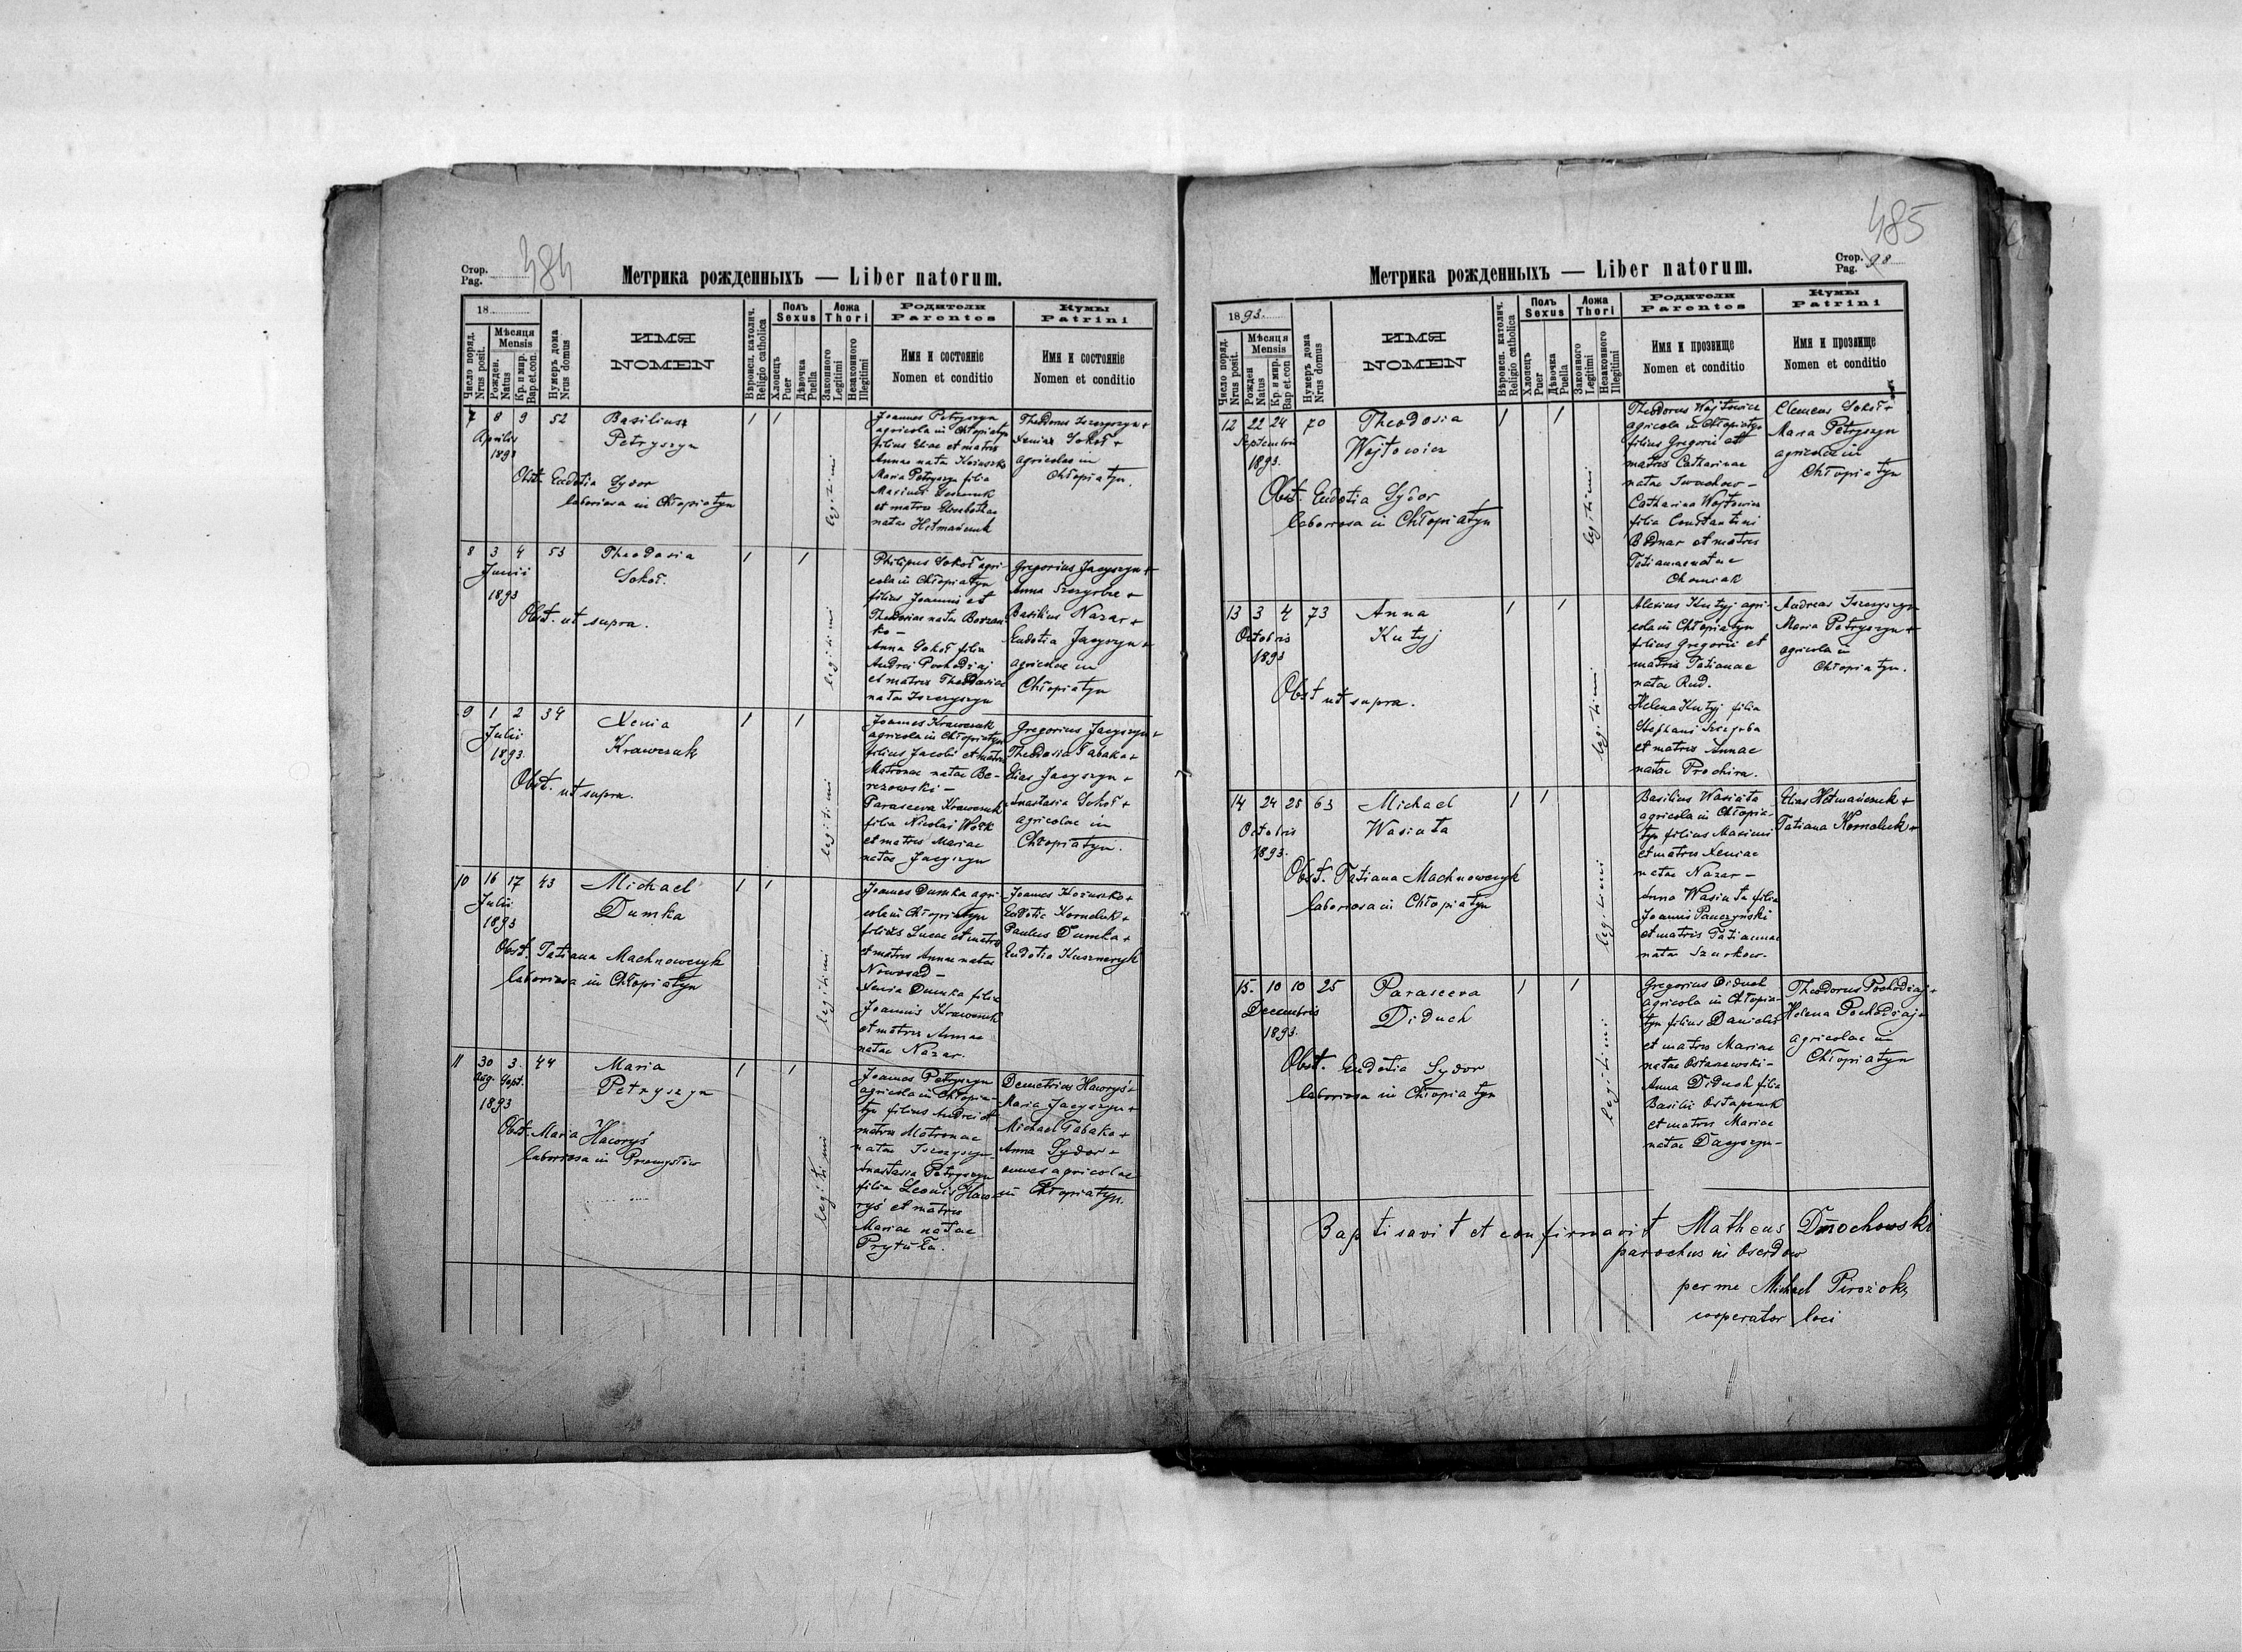 Стор.
Pag. 484
Метрика рожденныхъ — Liber natorum.
18
Число поряд.
Nrus posit.
Мѣсяця
Mensis
Рожден.
Natus
Кр. и мир.
Bap. et con.
Нумеръ дома
Nrus domus
ИМЯ
NOMEN
Вѣроисп. католич.
Religio catholica
Полъ
Sexus
Хлопецъ
Puer
Дѣвочка
Puella
Ложа
Thori
Законного
Legitimi
Незаконного
Illegitimi
Родители
Parentes
Имя и состояніе
Nomen et conditio
Кумы
Patrini
Имя и состояніе
Nomen et conditio
7 8 9 52 Basilius
Aprilis
1893
Petryszyn
1 1
legitimi
Obst. Eudotia Sydor
laboriosa in Chłopiatyn
Joannes Petryszyn
agricola in Chłopiatyn
filius Eliae et matris
Annae natae
Maria Petryszyn filia
Maximi
et matris
natae Hetmańczuk
Theodorus Iszczyszyn +
Xenia Sokoł +
agricolae in
Chłopiatyn.
8 3 4 53 Theodosia
Junii
1893
Sokoł.
1 1
legitimi
Obst. ut supra.
Philipus Sokoł agri-
cola in Chłopiatyn
filius Joannis et
Theodosiae natae
ko —
Anna Sokoł filia
Andrei Pochodziaj
et matris Theodosiae
natae Iszczyszyn
Gregorius Jacyszyn +
Anna +
Basilius Nazar +
Eudotia Jacyszyn +
agricolae in
Chłopiatyn
9 1 2 34 Xenia
Julii
1893
Krawczuk
1 1
legitimi
Obst. ut supra.
Joannes Krawczuk
agricola in Chłopiatyn
filius Jacobi et matris
Matronae natae Be-
rezowski —
Parasceva Krawczuk
filia Nicolai Wołk
et matris Mariae
natae Jacyszyn
Gregorius Jacyszyn +
Theodosia Tabaka +
Elias Jacyszyn +
Anastasia Sokoł +
agricolae in
Chłopiatyn.
10 16 17 43 Michael
Julii
1893
Dumka
1 1
legitimi
Obst. Tatiana Machnowczyk
laboriosa in Chłopiatyn
Joannes Dumka agri-
cola in Chłopiatyn
filius Lucae et matris
et matris Annae natae
Nowosad —
Xenia Dumka filia
Joannis Krawczuk
et matris Annae
natae Nazar.
Joannes Kożuszko +
Eudotia Korneluk +
Paulus Dumka +
Eudotia Kuszneryk
11 30 3. 44 Maria
Aug. Sept.
1893
Petryszyn
1 1
legitimi
Obst. Maria Haworyś
laboriosa in Przemysłów
Joannes Petryszyn
agricola in Chłopia-
tyn filius Andrei et
matris Matronae
natae Iszczyszyn
Anastasia Petryszyn
filia Leonis Hawo-
ryś et matris
Mariae natae
Prytuła.
Demetrius Haworyś +
Maria Jacyszyn +
Michael Tabaka +
Anna Sydor +
omnes agricolae
in Chłopiatyn.
485
Стор.
Pag. 98
Метрика рожденныхъ — Liber natorum.
1893.
Число поряд.
Nrus posit.
Мѣсяця
Mensis
Рожден
Natus
Кр. и мир.
Bap. et con
Нумеръ дома
Nrus domus
ИМЯ
NOMEN
Вѣроисп. католич.
Religio catholica
Полъ
Sexus
Хлопецъ
Puer
Дѣвочка
Puella
Ложа
Thori
Законного
Legitimi
Незаконного
Illegitimi
Родители
Parentes
Имя и прозвище
Nomen et conditio
Кумы
Patrini
Имя и прозвище
Nomen et conditio
12 22 24 70 Theodosia
Septembris
1893.
Wojtowicz
1 1
legitimi
Obst. Eudotia Sydor
laboriosa in Chłopiatyn
Theodorus Wojtowicz
agricola in Chłopiatyn
filius Gregorii et
matris Catharinae
natae Iwachow —
Catharina Wojtowicz
filia Constantini
Bodnar et matris
Tatianae natae
Chomiak
Clemens Sokoł +
Maria Petryszyn
agricolae in
Chłopiatyn
13 3 4 73 Anna
Octobris
1893
Kutyj
1 1
legitimi
Obst ut supra.
Alexius Kutyj agri-
cola in Chłopiatyn
filius Gregorii et
matris Tatianae
natae Rud.
Helena Kutyj filia
Stephani Szczyrba
et matris Annae
natae Prochira.
Andreas Iszczyszyn
Maria Petryszyn +
agricola in
Chłopiatyn.
14 24 25 63 Michael
Octobris
1893.
Wasiuta
1 1
legitimi
Obst. Tatiana Machnowczyk
laboriosa in Chłopiatyn
Basilius Wasiuta
agricola in Chłopia-
tyn filius Maximi
et matris Xeniae
natae Nazar —
Anna Wasiuta filia
Joannis Panczyński
et matris Tatianae
natae Szurkow.
Elias Hetmańczuk +
Tatiana Korneluk +
15. 10 10 25 Parasceva
Decembris
1893.
Diduch
1 1
legitimi
Obst. Eudotia Sydor
laboriosa in Chłopiatyn
Gregorius Diduch
agricola in Chłopia-
tyn filius Danielis
et matris Mariae
natae Ostaszewski —
Anna Diduch filia
Basilii Ostapczuk
et matris Mariae
natae Dacyszyn —
Theodorus Pochodziaj +
Helena Pochodziaj +
agricolae in
Chłopiatyn
Baptisavit et confirmavit Matheus Dmochowski
parochus in Oserdow
per me Michael Pirożok
cooperator loci